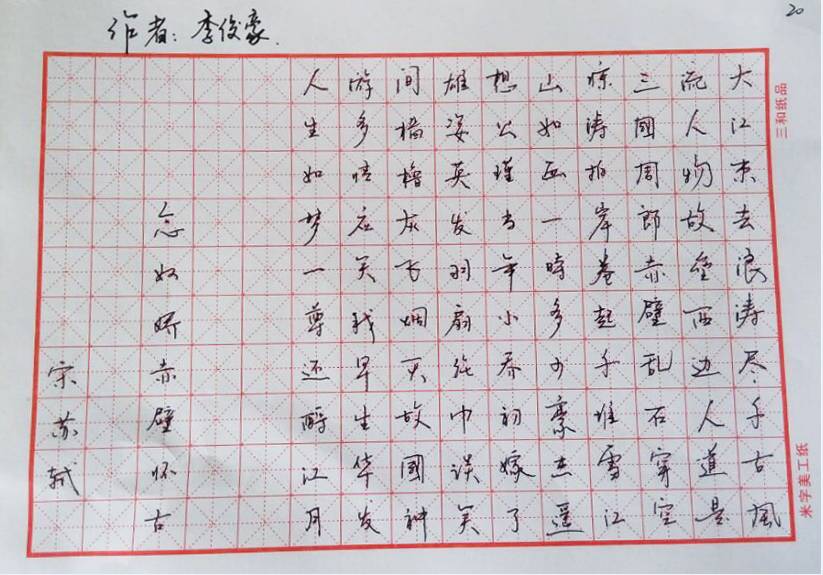 作者:李俊豪.
20
大江东去浪涛尽.千古風
流人物故垒西边人道是
三國周郎赤壁乱石穿空
惊涛拍岸卷起千堆雪江
山如画一時多少豪杰遥
想公瑾当年小乔初嫁了
雄姿英发羽扇纶巾谈笑
间樯橹灰飞烟灭故國神
游多情应笑我早生华发
人生如梦一尊还酹江月
念奴娇赤壁怀古
宋苏轼
三和纸品
米字美工纸